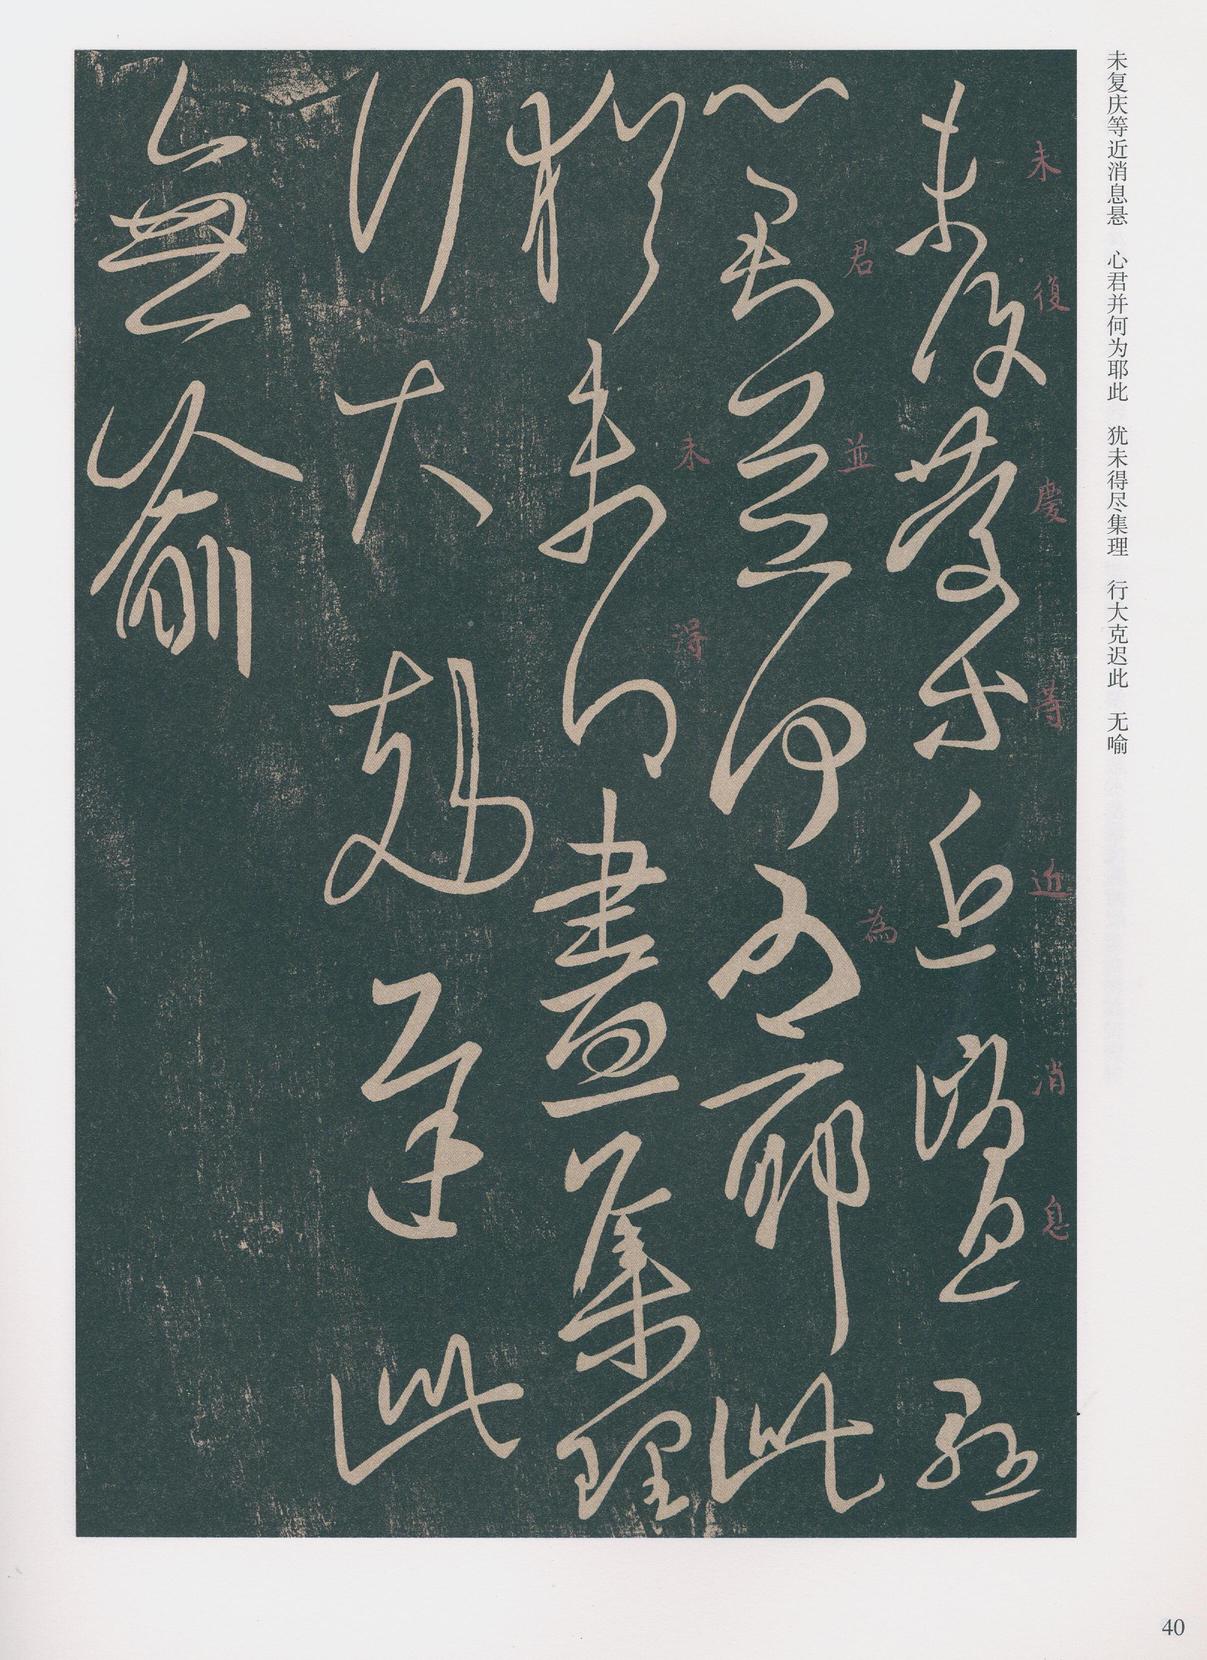 未复庆等近消息悬　心君并何为耶此　犹未得尽集理　行大克迟此　无喻
未復慶等近消息懸
心君並何爲耶此
猶未得盡集理
行大剋遲此
無喻
未復慶等近消息
君並為
未得
40